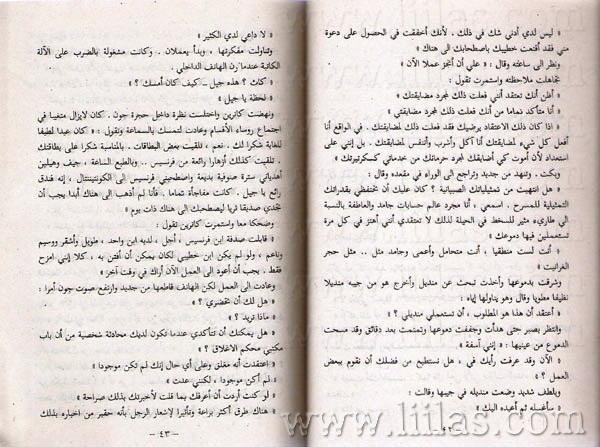 « ليس لدي أدنى شك في ذلك . لأنك أخفقت في الحصول على دعوة
مني فقد أقنعت خطيبك باصطحابك الى هناك »
ونظر الى ساعته وقال : « علي أن أنجز عملا الآن »
تجاهلت ملاحظته واستمرت تقول :
« أظن أنك تعتقد أنني فعلت ذلك لمجرد مضايقتك »
« أنا متأكد تماما من أنك فعلت ذلك لمجرد مضايقتي »
« اذا كان ذلك الاعتقاد يرضيك فقد فعلت ذلك لمضايقتك . في الواقع أنا
أفعل كل شيء لمضايقتك أنا آكل وأشرب وأتنفس لمضايقتك . بل إنني على
استعداد لأن أموت كي أضايقك لمجرد حرمانك من خدماتي كسكرتيرتك »
وبكت . وتنهد من جديد وتراجع الى الوراء في مقعده وقال :
« هل انتهيت من تمثيلياتك الصبيانية ؟ كان عليك أن تحتفظي بقدراتك
التمثيلية للمسرح . اسمعي ، أنا مجرد عالم حسابات جامد والعاطفة بالنسبة
الي طاريء مثير للسخط في الحيلة لذلك لا تعتقدي أنني أهتز في كل مرة
تستعملين فيها دموعك »
« أنت لست منطقيا ، أنت متحامل وأعمى وجامد مثل .. مثل حجر
الغرانيت »
وشرقت بدموعها وأخذت تبحث عن منديل وأخرج هو من جيبه منديلا
نظيفا مطويا وقال وهو يناولها إياه :
« أعتقد أن هذا هو المطلوب ، أن تستعملي منديلي ؟ »
وانتظر بصبر حتى هدأت وجففت دموعها وتمتمت بعد دقائق وقد مسحت
الدموع من عينيها : « إنني آسفة »
« الآن وقد عرفت رأيك في ، هل نستطيع من فضلك أن نقوم ببعض
العمل ؟ »
وبلطف شديد وضعت منديله في جيبها وقالت :
« سأغسله ثم أعيده اليك »
« لا داعي لدي الكثير »
وتناولت مفكرتها ، وبدأ يعملان . وكانت مشغولة بالضرب على الآلة
الكاتبة عندما رن الهاتف الداخلي .
« كات ؟ هذه جيل – كيف كان أمسك ؟ »
« لحظة يا جيل »
ونهضت كاترين واختلست نظرة داخل حجرة جون . كان لايزال متغيبا في
اجتماع روساء الأقسام وعادت لتمسك بالسماعة وتقول : « كان عيدا لطيفا
للغاية شكرا لك . نعم ، تلقيت بعض البطاقات . بالمناسبة شكرا على بطاقتك
. تلقيت كذلك أزهارا رائعة من فرنسيس .. وبالطبع الساعة ، جيف وهيلين
أهدياني سترة صنوفية بديعة واصطحبني فرنسيس الى الكونتيننتال ، إنه فندق
رائع يا جيل . كانت مفاجأة تماما . فأنا لم أذهب إلى هناك أبدا يجب أن
تجدي صديقا ثريا ليصحبك الى هناك ذات يوم »
وضحكا معا واستمرت كاترين تقول :
« قابلت صدفة ابن فرنسيس ، أجل ، لديه ابن واحد ، طويل وأشقر ووسيم
وناعم ، ولو لم يكن ابن خطيبي لكان يمكن أن أفتن به ، كلا إنني امزح
فقط . يجب أن أعود الى العمل الآن أراك في وقت آخر »
وعادت الى العمل لكن الهاتف قاطعها من جديد وارتفع صوت جون آمرا :
« هل لك أن تحضري ؟ »
« ماذا تريد ؟ »
« هل يمكنك أن تتأكدي عندما تكون لديك محادثة شخصية من أن باب
مكتبي محكم الاغلاق ؟ »
« اعتقدت أنه مغلق وعلى أي حال إنك لم تكن موجودا »
« لم أكن موجودا ، لكنني عدت »
« لو كنت أردت أن أعرفك بما قلت لأخبرتك بذلك صراحة »
« هناك طرق أكثر براعة وتأثيرا لإشعار الرجل بأنه حقير من اخباره بذلك
– ٤٣ –
www.liilas.com